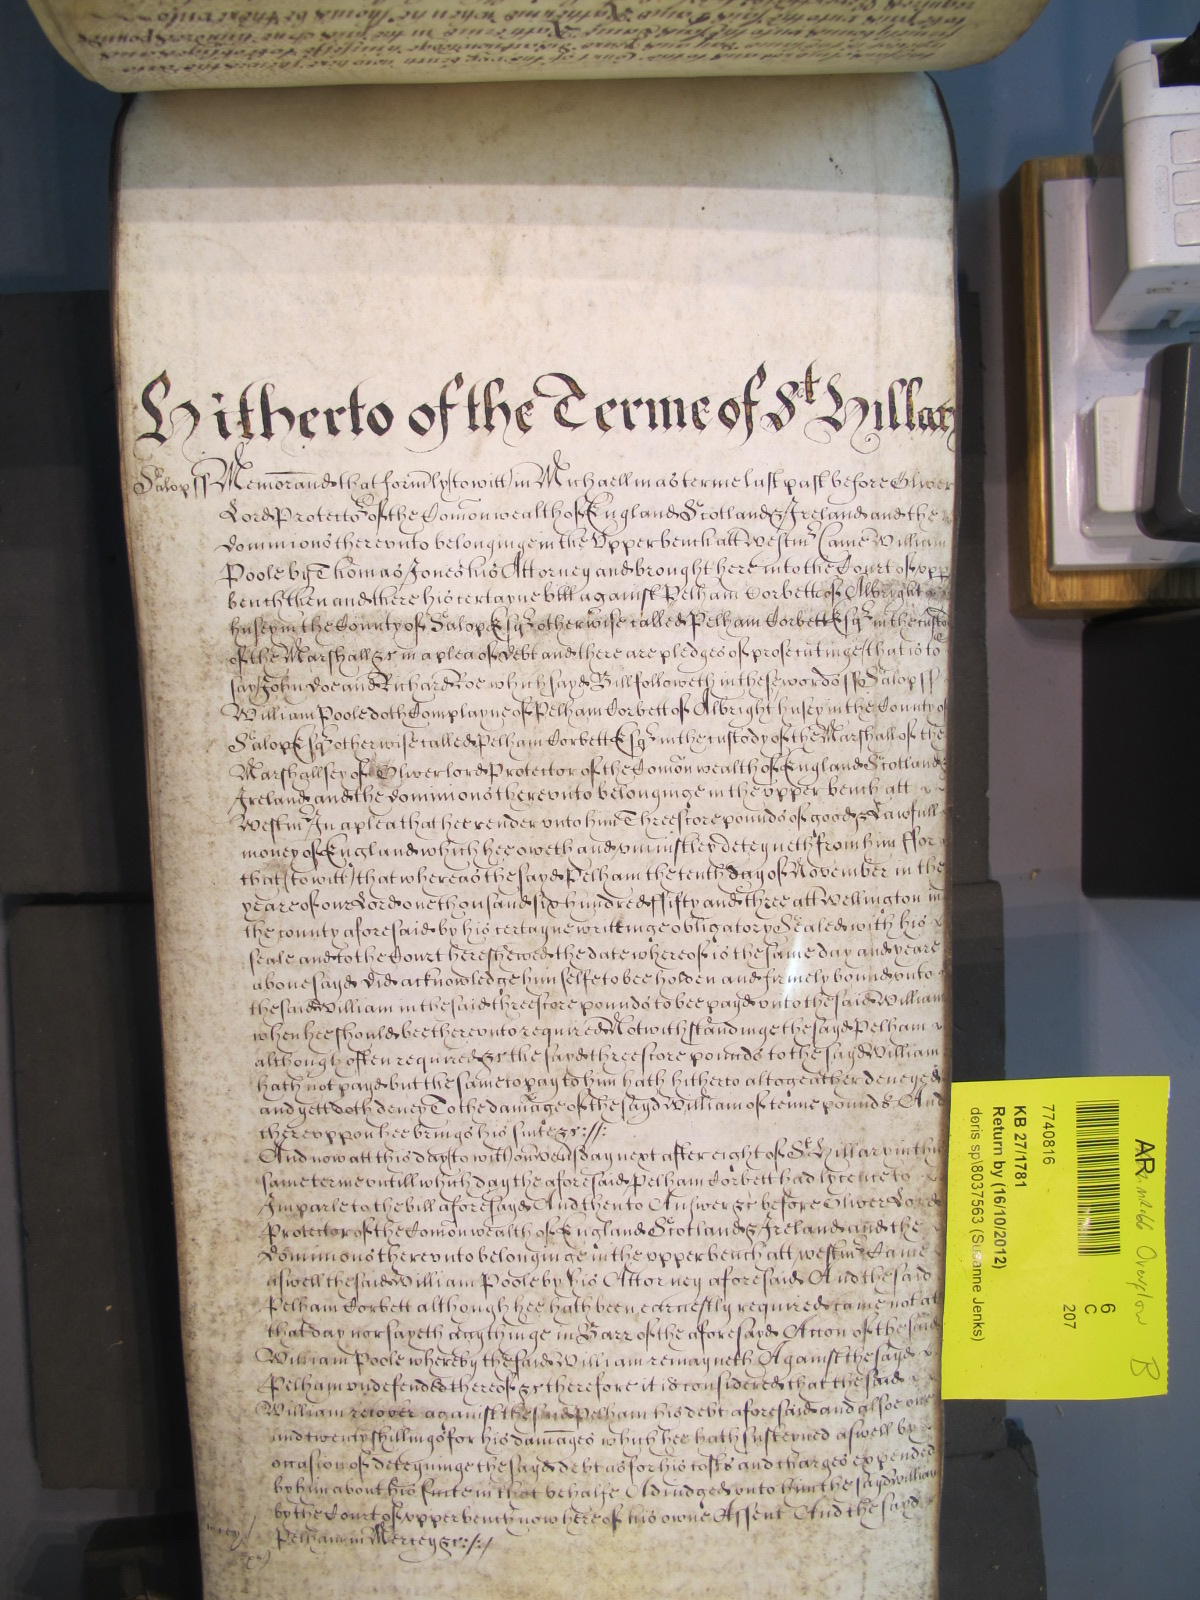 Hitherto of the Terme of St Hillary
Salop ss Memorand that formly (to witt) in Michaellmas terme last past before Oliver
Lord Protector of the Comonwealth of England Scotland & Ireland and the
dominions therevnto belonginge in the Vpper bench att Westmr Came William
Poole by Thomas Jones his Attorney and brought here into the Court of vpp
bench then and there his certayne bill against Pelham Corbett of Albright
husey in the County of Salop Esqr otherwise called Pelham Corbett Esqr in the custo
of the Marshall &c in a plea of debt and there are pledges of prosecutinge (that is to
say) John Doe and Richard Roe which sayd Bill followeth in these words ss Salop ss
William Poole doth Complayne of Pelham Corbett of Albright husey in the County of
Salop Esqr otherwise called Pelham Corbett Esqr in the custody of the Marshall of the
Marshallsey of Oliver lord Protector of the Comonwealth of England Scotland &
Ireland and the dominions therevnto belonginge in the vpper bench att
Westmr In a plea that hee render vnto him Threescore pounds of good & Lawfull
money of England which hee oweth and vniustley deteyneth from him ffor
that (to witt) that whereas the sayd Pelham the tenth day of November in the
yeare of our Lord one thousand six hundred ffifty and three att Wellington in
the county aforesaid by his certayne writtinge obligatory Sealed with his
seale and to the Court here shewed the date whereof is the same day and yeare
aboue sayd did acknowledge himselfe to bee holden and firmely bound vnto
the said William in the said threescore pounds to bee payd vnto the said William
when hee should bee therevnto required Notwithstandinge the sayd Pelham
although often required &c the sayd threescore pounds to the sayd William
hath not payd but the same to pay to him hath hitherto altogeather deneyed
and yett doth deney To the damage of the sayd William of tenne pounds And
therevppon hee brings his suite &c ://:
And now att this day (to witt) on Wensday next after eight of St Hillary in this
same terme vntill which day the aforesaid Pelham Corbett had lycence to
Imparle to the bill aforesayd And then to Answer &c before Oliver Lord
Protector of the Comonwealth of England Scotland & Ireland and the
dominions therevnto belonginge in the vpper bench att westmr Came
aswell the said William Poole by his Attorney aforesaid And the said
Pelham Corbett although hee hath been earnestly required came not att
that day nor sayeth anythinge in Barr of the aforesayd Accon of the said
William Poole whereby the said William remayneth Against the sayd
Pelham vndefended thereof &c therefore it is considered that the said
William recover against the said Pelham his debt aforesaid and alsoe one
and twenty shillings for his damages which hee hath susteyned aswell by
occasion of deteyninge the sayd debt as for his costs and charges expended
by him about his suite in that behalfe Adiudged vnto him the sayd William
by the Court of vpper bench now here of his owne Assent And the sayd
Pelham in Mercey &c ://
mercy
7740816
KB 27/1781
Return by (16/10/2012)
doris sp\8037563 (Susanne Jenks)
6
C
207
AR
Overflow
B